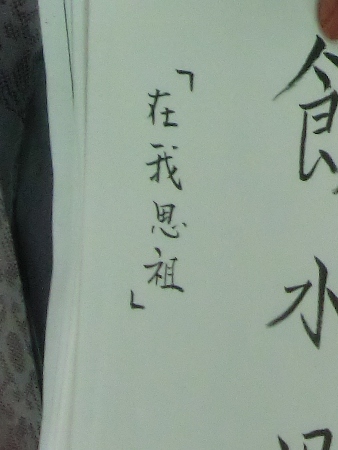 飲水
「在我思祖」